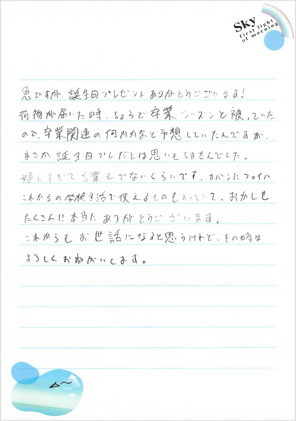 Sky
first light
of morning
急ですが 誕生日プレゼント ありがとうございます!
荷物が届いた時、ちょうど卒業シーズンと被っていた
ので、卒業関連の何かかなと予想していたんですが、
まさか誕生日プレだとは思いもしませんでした。
嬉しすぎて言葉もでないくらいです。カバンにファイル
これからの学校生活で使えるものも入っていて、おかしも
たくさん!!本当にありがとうございます。
これからもお世話になると思うけれど、その時は
よろしくおねがいします。